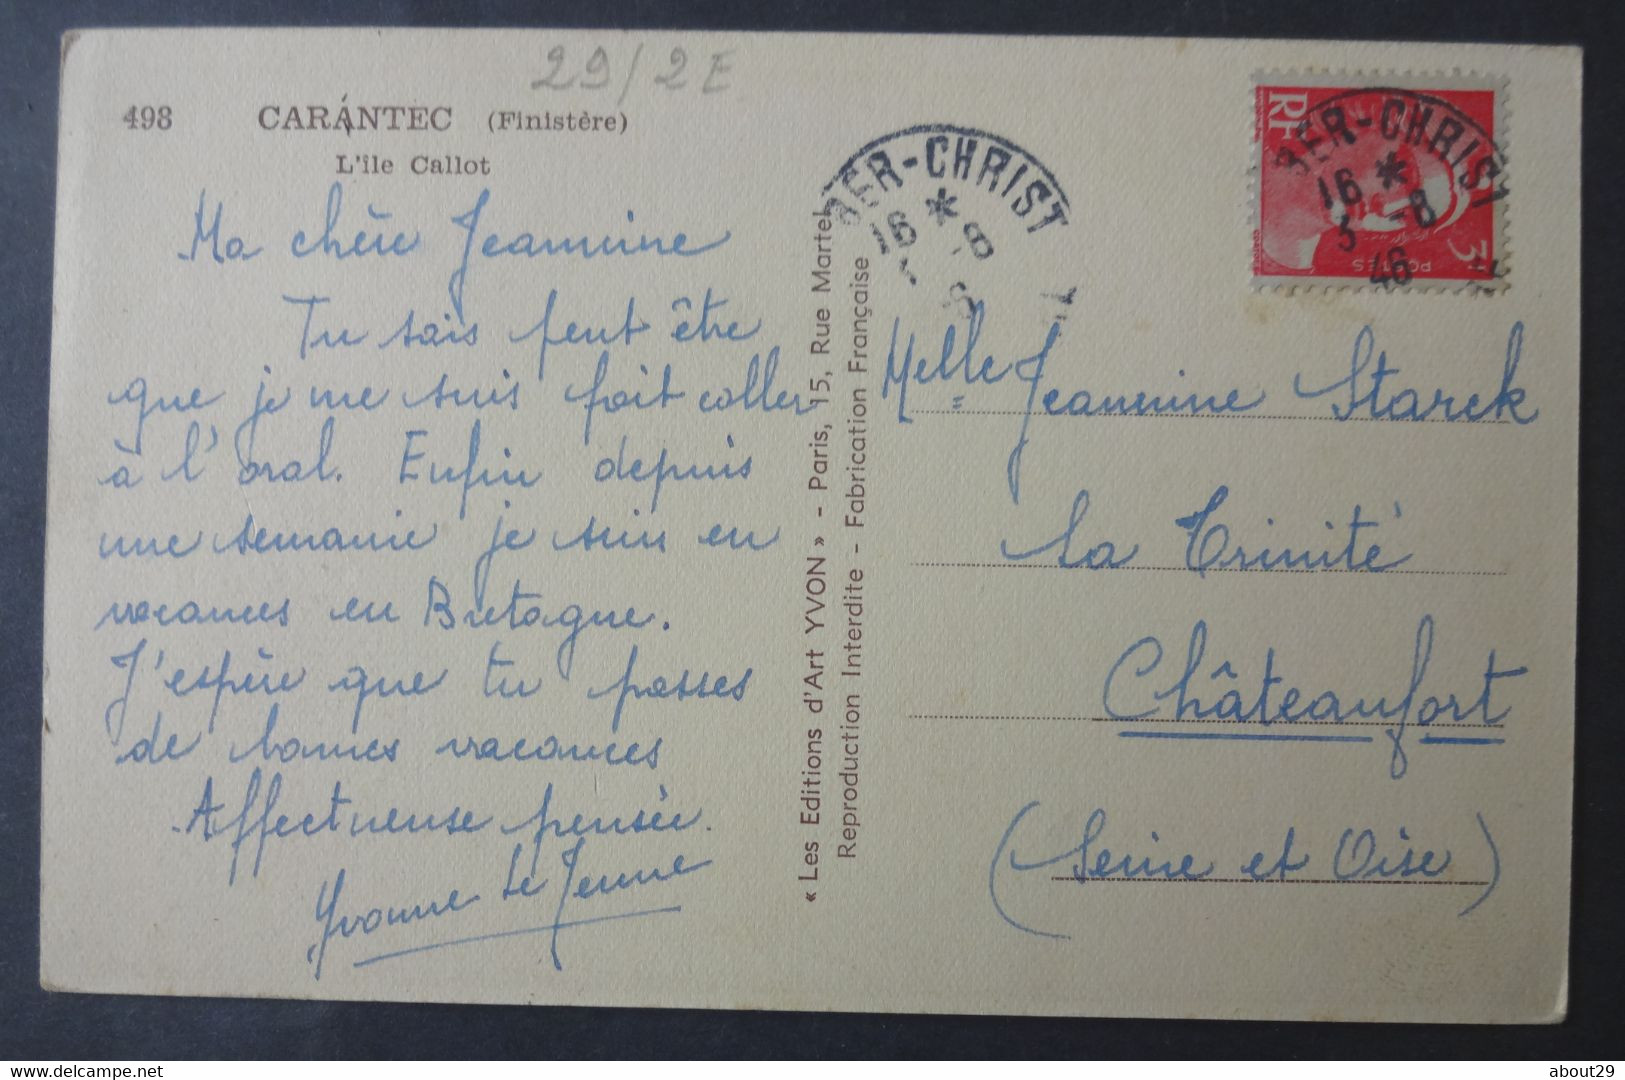 29/2E
498 CARANTEC (Finistère)
L'île Callot
Ma chère Jeannine
Tu sais peut être
que je me suis fait coller
à l'oral. Enfin depuis
une semaine je suis en
vacances en Bretagne.
J'espère que tu passes
de bonnes vacances
Affectueuse pensée.
Yvonne Le Jeune
« Les Editions d'Art YVON » - Paris, 15, Rue Martel
Reproduction Interdite - Fabrication Française
BER-CHRIST
16 * -8
RF
POSTES
3F
BER-CHRIST
16 *
3 -8
46
Melle Jeannine Starck
La Trinité
Châteaufort
(Seine et Oise)
delcampe.net
about29